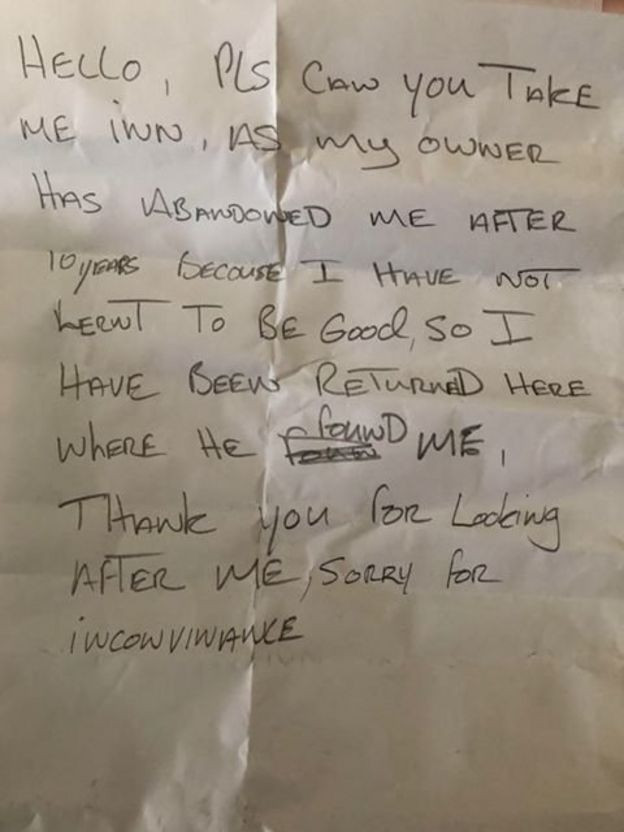 HELLO, PLS CAN YOU TAKE
ME INN, AS MY OWNER
HAS ABANDONED ME AFTER
10 YEARS BECOUSE I HAVE NOT
LERNT TO BE GOOD, SO I
HAVE BEEN RETURNED HERE
WHERE HE FOUND ME,
THANK YOU FOR LOOKING
AFTER ME, SORRY FOR
INCONVINANCE